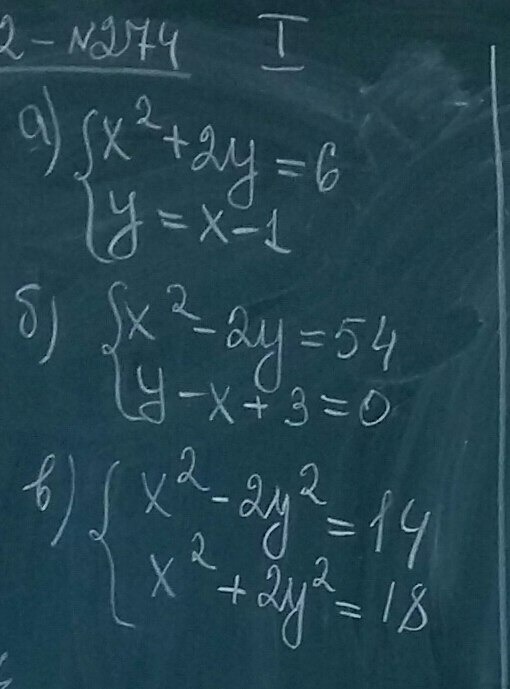 2-N274 I
а) { x² + 2y = 6
y = x - 1
б) { x² - 2y = 54
y - x + 3 = 0
в) { x² - 2y² = 14
x² + 2y² = 18